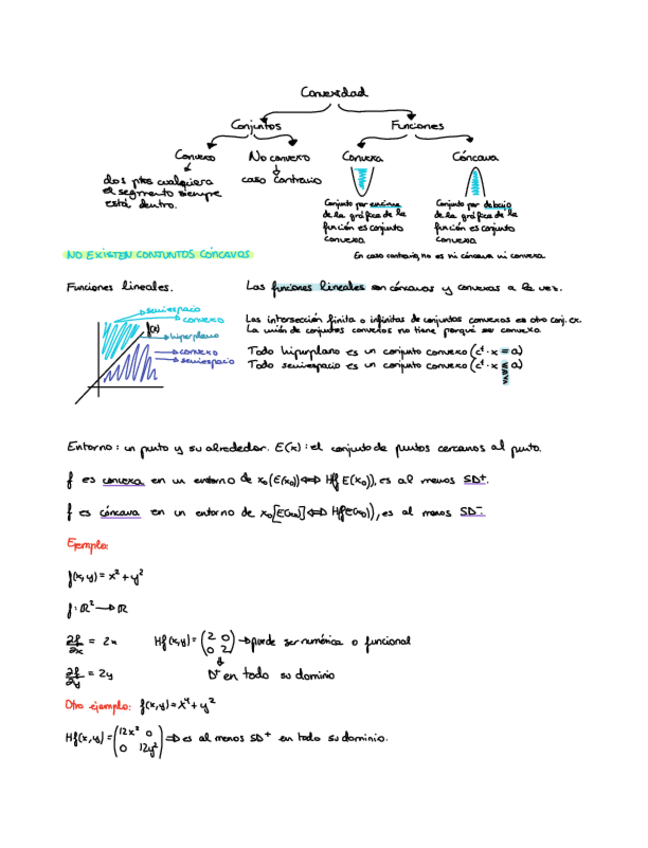 Convexidad
Conjuntos
Funciones
Convexo
No convexo
Convexa
Cóncava
dos ptos cualquiera
el segmento siempre
está dentro.
caso contrario
Conjunto por encima
de la gráfica de la
función es conjunto
convexa
Conjunto por debajo
de la gráfica de la
función es conjunto
convexa
NO EXISTEN CONJUNTOS CÓNCAVOS
En caso contrario, no es ni cóncava ni convexa.
Funciones lineales.
Las funciones lineales son cóncavas y convexas a la vez.
semiespacio
convexo
f(x)
hiperplano
convexo
semiespacio
Las intersección finita o infinitas de conjuntos convexos es otro conj. cx.
La unión de conjuntos convexos no tiene porqué ser convexo.
Todo hiperplano es un conjunto convexo (cᵗ · x = a)
Todo semiespacio es un conjunto convexo (cᵗ · x a)
Entorno: un punto y su alrededor. E(x): el conjunto de puntos cercanos al punto.
f es convexa en un entorno de x₀ (E(x₀)) ⇔ Hf E(x₀)), es al menos SD⁺.
f es cóncava en un entorno de x₀ [E(x₀)] ⇔ Hf E(x₀)), es al menos SD⁻.
Ejemplo:
f(x,y) = x² + y²
f: ℝ² → ℝ
∂f/∂x = 2x
Hf(x,y) = (2 0
0 2) → puede ser numérica o funcional
∂f/∂y = 2y
D⁺ en todo su dominio
Otro ejemplo: f(x,y) = x⁴ + y²
Hf(x,y) = (12x² 0
0 12y²) ⇒ es al menos SD⁺ en todo su dominio.